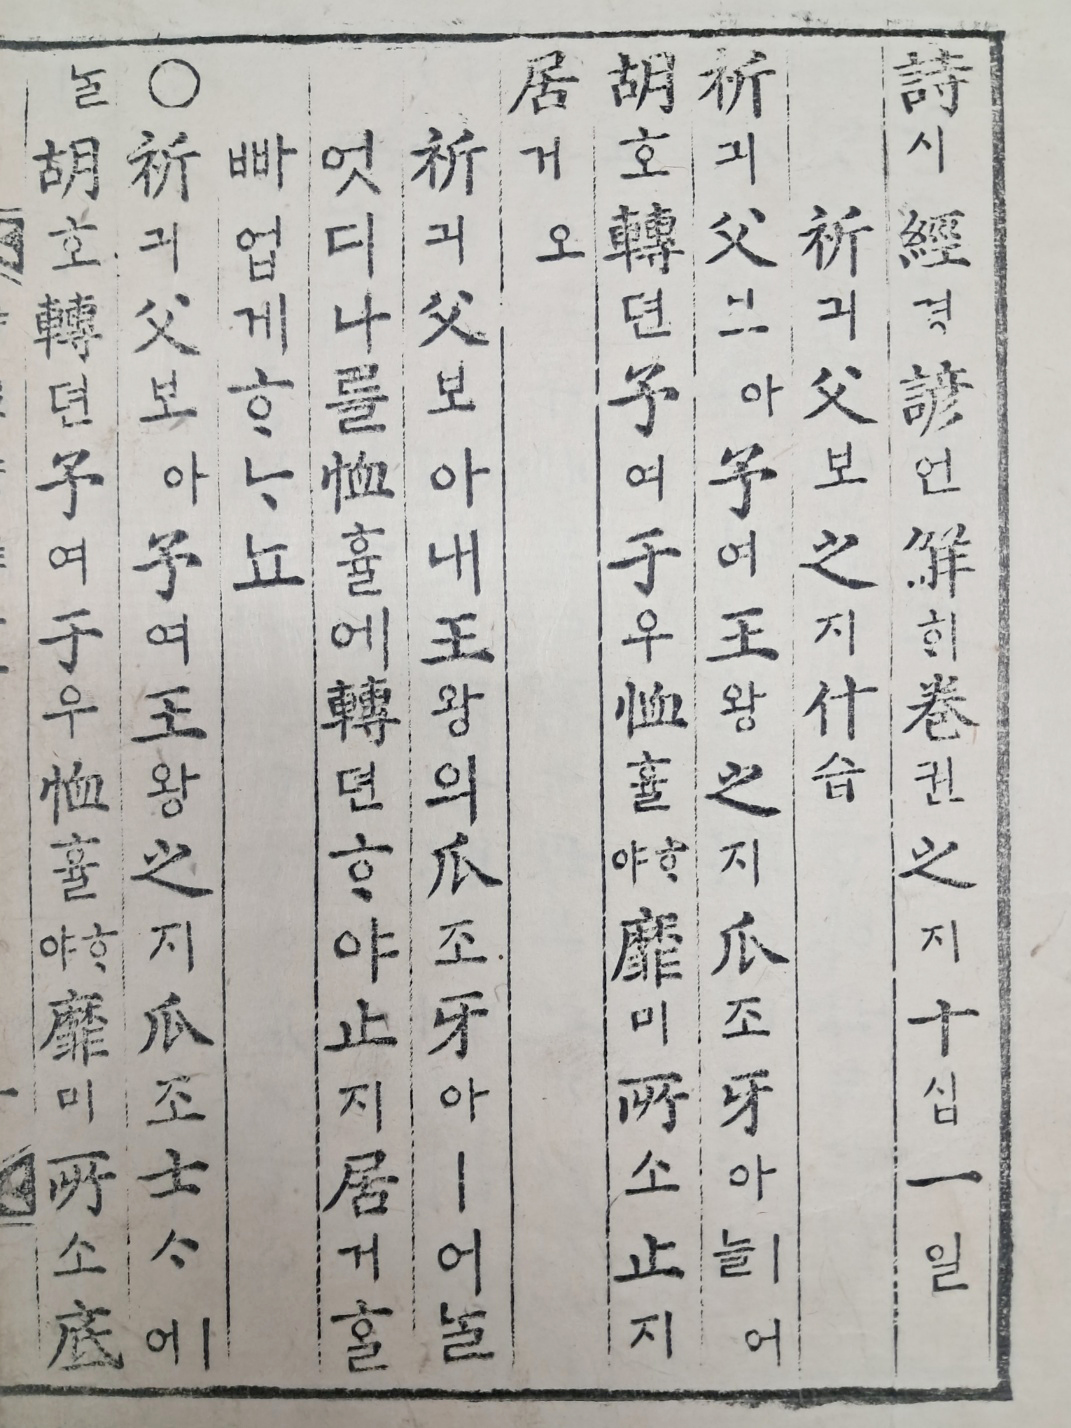 詩시經경諺언解ᄒᆡ卷권之지十십一일
祈긔父보之지什습
祈긔父보아予여王왕之지爪조牙아ㅣ어늘
胡호轉뎐予여于우恤휼ᄒᆞ야靡미所소止지
居거오
祈긔父보아내王왕의爪조牙아ㅣ어놀
엇디나를恤휼에轉뎐ᄒᆞ야止지居거홀
빠업게ᄒᆞᄂᆞ뇨
○祈긔父보아予여王왕之지爪조士ᄉᆞㅣ에
놀胡호轉뎐予여于우恤휼ᄒᆞ야靡미所소底